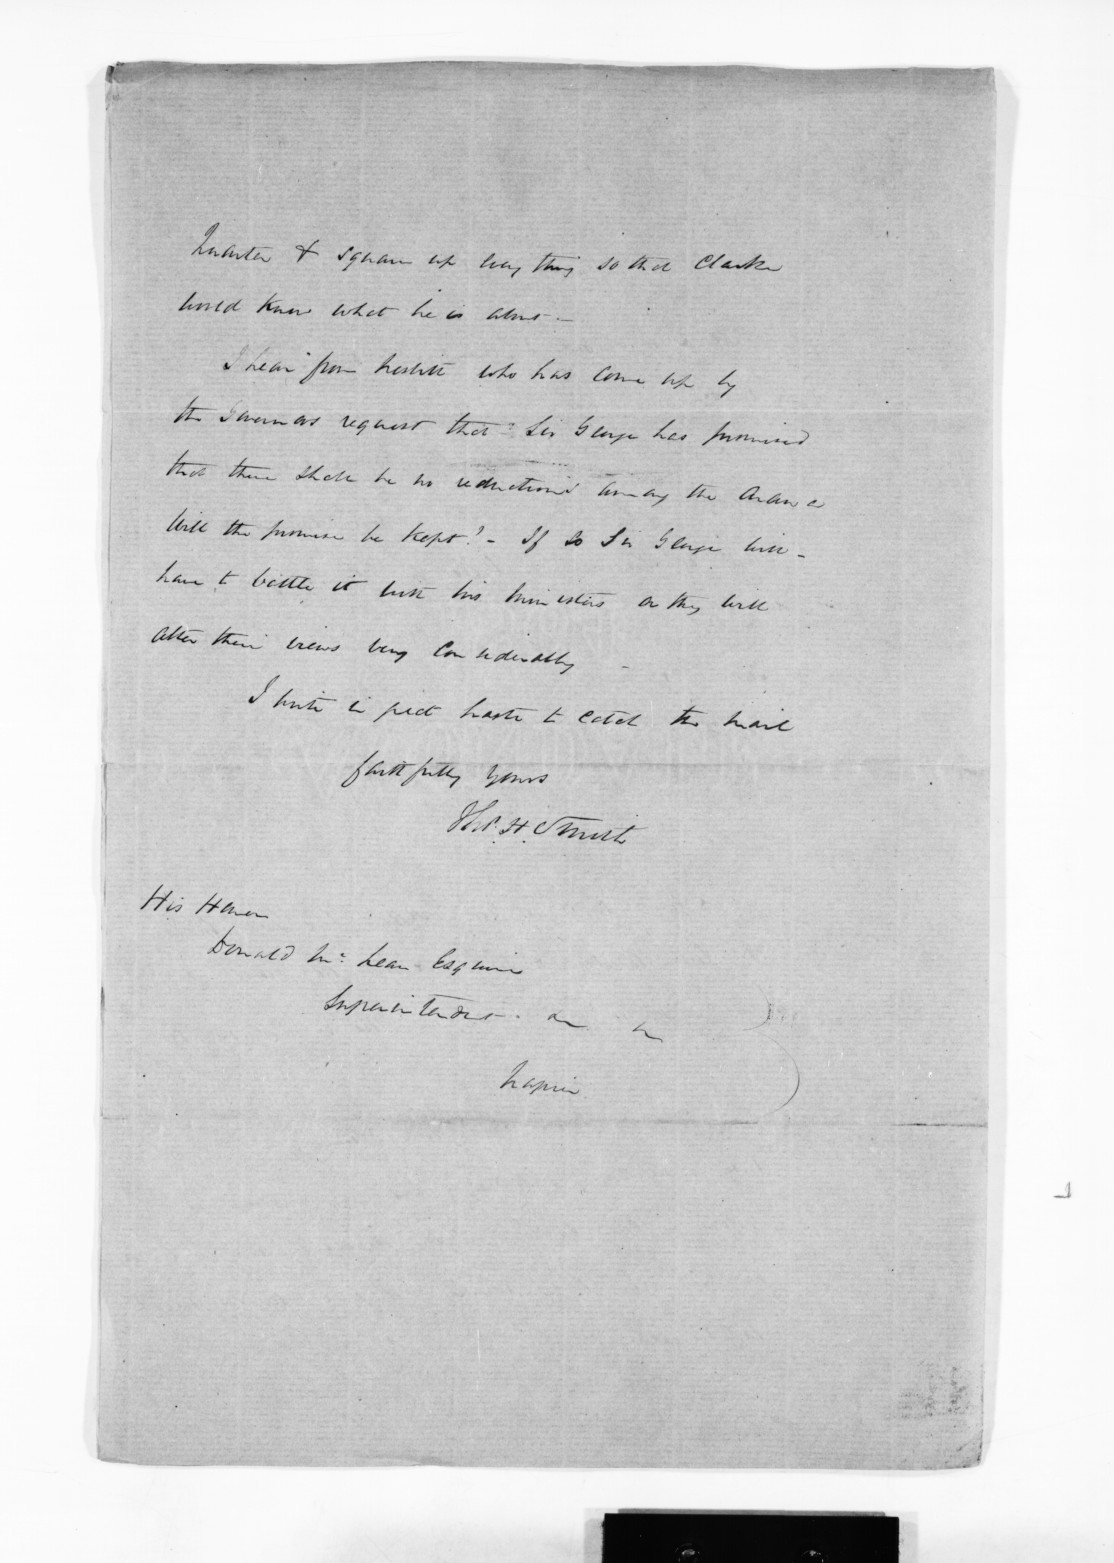 Quarter & square up every thing so that Clarke
would know what he is about -
I hear from Nesbitt who has come up by
the Governors request that "Sir George has promised
that there shall be no reductions among the
Will the promise be kept? - If so Sir George will -
have to battle it with his ministers or they will
alter their views very considerably -
I write in great haste to catch the mail
faithfully yours
Thos. H. Smith
His Honor
Donald McLean Esquire
Superintendent
Napier